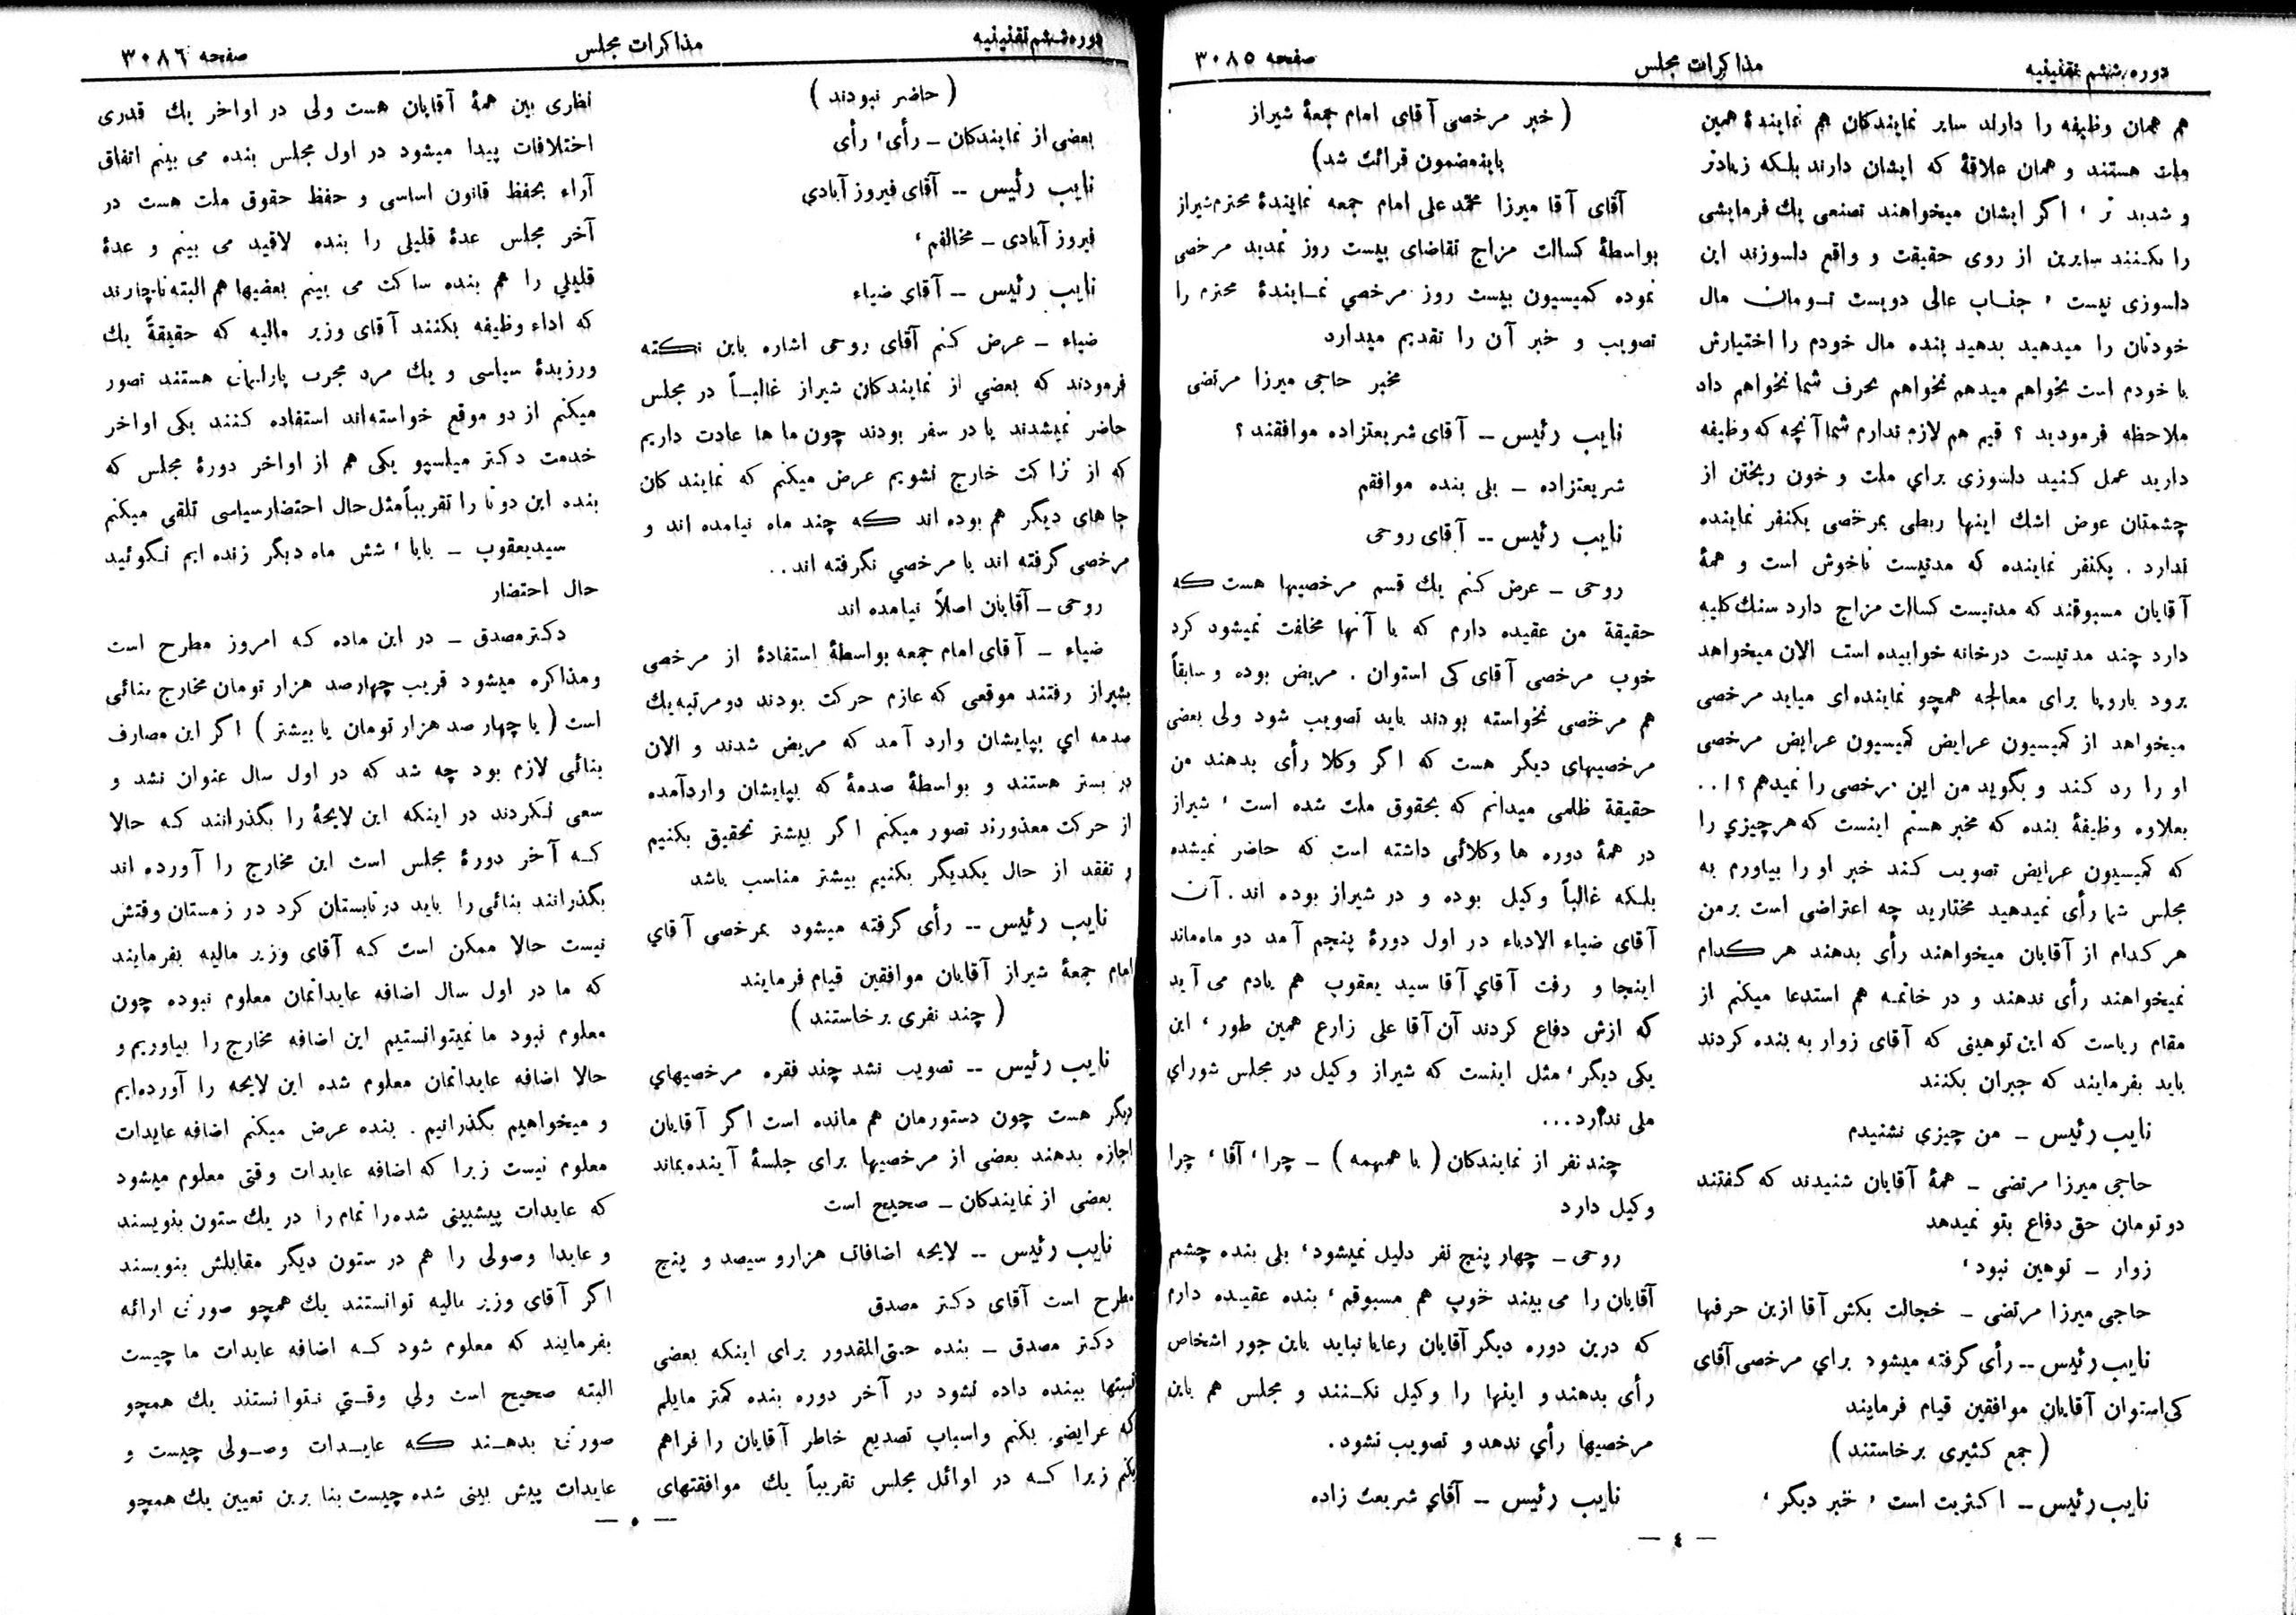 دوره ششم تقنینیه
مذاکرات مجلس
صفحه ۳۰۸۵
هم همان وظیفه را دارند سایر نمایندکان هم نمایندهٔ همین
ملت هستند و همان علاقهٔ که ایشان دارند بلکه زیادتر
و شدید تر ، اکر ایشان میخواهند تصنعی یك فرمایشی
را بکنند سایرین از روی حقیقت و واقع دلسوزند این
دلسوزی نیست ، جناب عالی دویست تومان مال
خودتان را میدهید بدهید بنده مال خودم را اختیارش
با خودم است بخواهم میدهم نخواهم بحرف شما نخواهم داد
ملاحظه فرمودید ؟ قیم هم لازم ندارم شما آنچه که وظیفه
دارید عمل کنید دلسوزی برای ملت و خون ریختن از
چشمتان عوض اشك اینها ربطی بمرخصی یکنفر نماینده
ندارد . یکنفر نماینده که مدتیست ناخوش است و همهٔ
آقایان مسبوقند که مدتیست کسالت مزاج دارد سنك کلیه
دارد چند مدتیست در خانه خوابیده است الان میخواهد
برود باروپا برای معالجه همچو نماینده‌ای میاید مرخصی
میخواهد از کمیسیون عرایض کمیسیون عرایض مرخصی
او را رد کند و بگوید من این مرخصی را نمیدهم ؟ ! . .
بعلاوه وظیفهٔ بنده که مخبر هستم اینست که هر چیزی را
که کمیسیون عرایض تصویب کند خبر او را بیاورم به
مجلس شما رأی نمیدهید مختارید چه اعتراضی است بر من
هر کدام از آقایان میخواهند رأی بدهند هر کدام
نمیخواهند رأی ندهند و در خاتمه هم استدعا میکنم از
مقام ریاست که این توهینی که آقای زوار به بنده کردند
باید بفرمایند که جبران بکنند
نایب رئیس ــ من چیزی نشنیدم
حاجی میرزا مرتضی ــ همهٔ آقایان شنیدند که گفتند
دو تومان حق دفاع بتو نمیدهد
زوار ــ توهین نبود ،
حاجی میرزا مرتضی ــ خجالت بکش آقا ازین حرفها
نایب رئیس ــ رأی کرفته میشود برای مرخصی آقای
کی استوان آقایان موافقین قیام فرمایند
( جمع کثیری برخاستند )
نایب رئیس ــ اکثریت است ، خبر دیگر ،
( خبر مرخصی آقای امام جمعهٔ شیراز
باینمضمون قرائت شد )
آقای آقا میرزا محمد علی امام جمعه نمایندهٔ محترم شیراز
بواسطهٔ کسالت مزاج تقاضای بیست روز تمدید مرخصی
نموده کمیسیون بیست روز مرخصی نمایندهٔ محترم را
تصویب و خبر آن را تقدیم میدارد
مخبر حاجی میرزا مرتضی
نایب رئیس ــ آقای شریعتزاده موافقند ؟
شریعتزاده ــ بلی بنده موافقم
نایب رئیس ــ آقای روحی
روحی ــ عرض کنم یك قسم مرخصیها هست که
حقیقة من عقیده دارم که با آنها مخالفت نمیشود کرد
خوب مرخصی آقای کی استوان . مریض بوده و سابقاً
هم مرخصی نخواسته بودند باید تصویب شود ولی بعضی
مرخصیهای دیگر هست که اگر وکلا رأی بدهند من
حقیقة ظلمی میدانم که بحقوق ملت شده است ، شیراز
در همهٔ دوره ها وکلائی داشته است که حاضر نمیشده
بلکه غالباً وکیل بوده و در شیراز بوده اند . آن
آقای ضیاء الادباء در اول دورهٔ پنجم آمد دو ماه ماند
اینجا و رفت آقای آقا سید یعقوب هم یادم می آید
که ازش دفاع کردند آن آقا علی زارع همین طور ، این
یکی دیگر ، مثل اینست که شیراز وکیل در مجلس شورای
ملی ندارد . . .
چند نفر از نمایندکان ( با همهمه ) ــ چرا ، آقا ، چرا
وکیل دارد
روحی ــ چهار پنج نفر دلیل نمیشود ، بلی بنده چشم
آقایان را می بیند خوب هم مسبوقم ، بنده عقیده دارم
که درین دوره دیگر آقایان رعایا نباید باین جور اشخاص
رأی بدهند و اینها را وکیل نکنند و مجلس هم باین
مرخصیها رأی ندهد و تصویب نشود .
نایب رئیس ــ آقای شریعت زاده
— ٤ —
دوره ششم تقنینیه
مذاکرات مجلس
صفحه ۳۰۸٦
( حاضر نبودند )
بعضی از نمایندکان ــ رأی ، رأی
نایب رئیس ــ آقای فیروز آبادی
فیروز آبادی ــ مخالفم ،
نایب رئیس ــ آقای ضیاء
ضیاء ــ عرض کنم آقای روحی اشاره باین نکته
فرمودند که بعضی از نمایندکان شیراز غالباً در مجلس
حاضر نمیشدند یا در سفر بودند چون ما ها عادت داریم
که از نزاکت خارج نشویم عرض میکنم که نمایندکان
جاهای دیگر هم بوده اند که چند ماه نیامده اند و
مرخصی کرفته اند یا مرخصی نگرفته اند . .
روحی ــ آقایان اصلاً نیامده اند
ضیاء ــ آقای امام جمعه بواسطهٔ استفادهٔ از مرخصی
بشیراز رفتند موقعی که عازم حرکت بودند دو مرتبه یك
صدمه ای بپایشان وارد آمد که مریض شدند و الان
در بستر هستند و بواسطهٔ صدمهٔ که بپایشان وارد آمده
از حرکت معذورند تصور میکنم اگر بیشتر تحقیق بکنیم
و تفقد از حال یکدیگر بکنیم بیشتر مناسب باشد
نایب رئیس ــ رأی کرفته میشود بمرخصی آقای
امام جمعهٔ شیراز آقایان موافقین قیام فرمایند
( چند نفری برخاستند )
نایب رئیس ــ تصویب نشد چند فقره مرخصیهای
دیگر هست چون دستورمان هم مانده است اکر آقایان
اجازه بدهند بعضی از مرخصیها برای جلسهٔ آینده بماند
بعضی از نمایندکان ــ صحیح است
نایب رئیس ــ لایحه اضافات هزار و سیصد و پنج
مطرح است آقای دکتر مصدق
دکتر مصدق ــ بنده حتی‌المقدور برای اینکه بعضی
نسبتها ببنده داده نشود در آخر دوره بنده کمتر مایلم
که عرایضی بکنم و اسباب تصدیع خاطر آقایان را فراهم
بکنم زیرا که در اوائل مجلس تقریباً یك موافقتهای
نظری بین همهٔ آقایان هست ولی در اواخر یك قدری
اختلافات پیدا میشود در اول مجلس بنده می بینم اتفاق
آراء بحفظ قانون اساسی و حفظ حقوق ملت هست در
آخر مجلس عدهٔ قلیلی را بنده لاقید می بینم و عدهٔ
قلیلی را هم بنده ساکت می بینم بعضیها هم البته ناچارند
که اداء وظیفه بکنند آقای وزیر مالیه که حقیقةً یك
ورزیدهٔ سیاسی و یك مرد مجرب پارلمان هستند تصور
میکنم از دو موقع خواسته‌اند استفاده کنند یکی اواخر
خدمت دکتر میلسپو یکی هم از اواخر دورهٔ مجلس که
بنده این دو تا را تقریباً مثل حال احتضار سیاسی تلقی میکنم
سید یعقوب ــ بابا ، شش ماه دیگر زنده ایم نگوئید
حال احتضار
دکتر مصدق ــ در این ماده که امروز مطرح است
و مذاکره میشود قریب چهارصد هزار تومان مخارج بنائی
است ( یا چهار صد هزار تومان یا بیشتر ) اکر این مصارف
بنائی لازم بود چه شد که در اول سال عنوان نشد و
سعی نکردند در اینکه این لایحهٔ را بگذرانند که حالا
که آخر دورهٔ مجلس است این مخارج را آورده اند
بگذرانند بنائی را باید در تابستان کرد در زمستان وقتش
نیست حالا ممکن است که آقای وزیر مالیه بفرمایند
که ما در اول سال اضافه عایداتمان معلوم نبوده چون
معلوم نبود ما نمیتوانستیم این اضافه مخارج را بیاوریم و
حالا اضافه عایداتمان معلوم شده این لایحه را آورده‌ایم
و میخواهیم بگذرانیم . بنده عرض میکنم اضافه عایدات
معلوم نیست زیرا که اضافه عایدات وقتی معلوم میشود
که عایدات پیشبینی شده را تمام را در یك ستون بنویسند
و عایدا وصولی را هم در ستون دیگر مقابلش بنویسند
اگر آقای وزیر مالیه توانستند یك همچو صورتی ارائه
بفرمایند که معلوم شود که اضافه عایدات ما چیست
البته صحیح است ولی وقتی نتوانستند یك همچو
صورتی بدهند که عایدات وصولی چیست و
عایدات پیش بینی شده چیست بنا برین تعیین یك همچو
— ٥ —